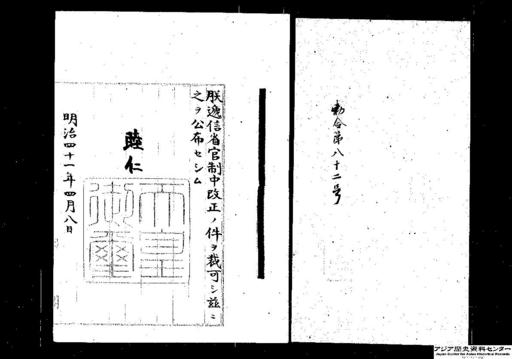 勅令第八十二号
朕逓信省官制中改正ノ件ヲ裁可シ茲ニ
之ヲ公布セシム
睦仁
天皇御璽
明治四十一年四月八日
アジア歴史資料センター
Japan Center for Asian Historical Records